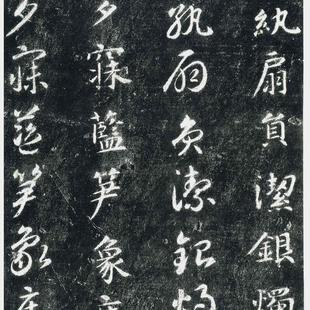 紈扇員潔銀燭
紈扇員潔銀燭
夕寐藍笋象牀
夕寐藍笋象牀